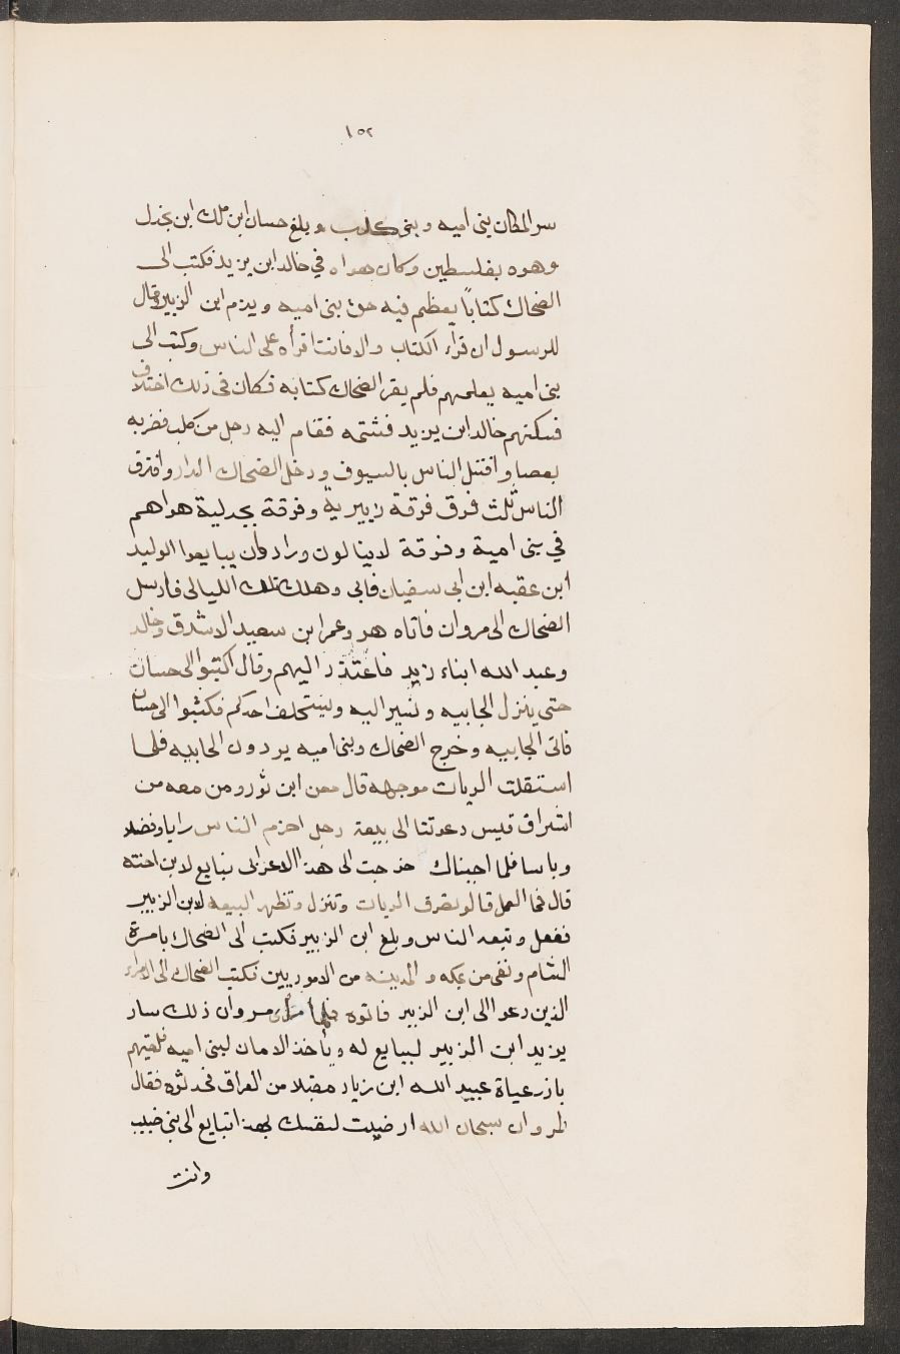 ١٥٢
سر المكان بنى اميه وبنى كلب وبلغ حسان ابن ملك ابن بجدل
وهوه بفلسطين وكان هواه في خالد ابن يزيد فكتب الى
الضحاك كتاباً يعظم فيه حق بنى اميه ويذم ابن الزبير وقال
للرسول ان قراء الكتاب والا فانت اقرأه على الناس وكتب الى
بنى اميه يعلمهم فلم يقر الضحاك كتابه فكان فى ذلك اختلاف
فسكنهم خالد ابن يزيد فشتمه فقام اليه رجل من كلب فضربه
بعصا واقتتل الناس بالسيوف ودخل الضحاك الدار وافترق
الناس ثلث فرق فرقة زبيرية وفرقة بجدلية هواهم
في بنى امية وفرقة لا يبالون وارادوان يبايعوا الوليد
ابن عقبه ابن ابى سفيان فابى وهلك تلك الليالى فارسل
الضحاك الى مروان فاتاه هو وعمر ابن سعيد الاشدق وخالد
وعبد الله ابناء زيد فاعتذر اليهم وقال اكتبوا الى حسان
حتى ينزل الجابيه ونسير اليه ونستخلف احدكم فكتبوا الى حسان
فاتى الجابيه وخرج الضحاك وبنى اميه يردون الجابيه فلما
استقلت الريات موجهه قال معن ابن ثور ومن معه من
اشراق قيس دعوتنا الى بيعة رجل احزم الناس رايا وفضلا
وباسا فلما اجبناك خرجت الى هذا الاعرابى نبايع لابن اخته
قال فما العمل قالو نصرف الريات وتنزل وتظهر البيعه لابن الزبير
ففعل وتبعه الناس وبلغ ابن الزبير فكتب الى الضحاك بامرة
الشام ونفى من بمكه والمدينه من الامويين فكتب الضحاك الى الامراء
الذين دعو الى ابن الزبير فاتوه فلما مروان ذلك سار
يزيد ابن الزبير ليبايع له ويأخذ الامان لبنى اميه فلقيهم
باذرعياة عبيد الله ابن زياد مقبلا من العراق فحدثوه فقال
لمروان سبحان الله ارضيت لنفسك بهذا تبايع الى بنى خبيب
وانت